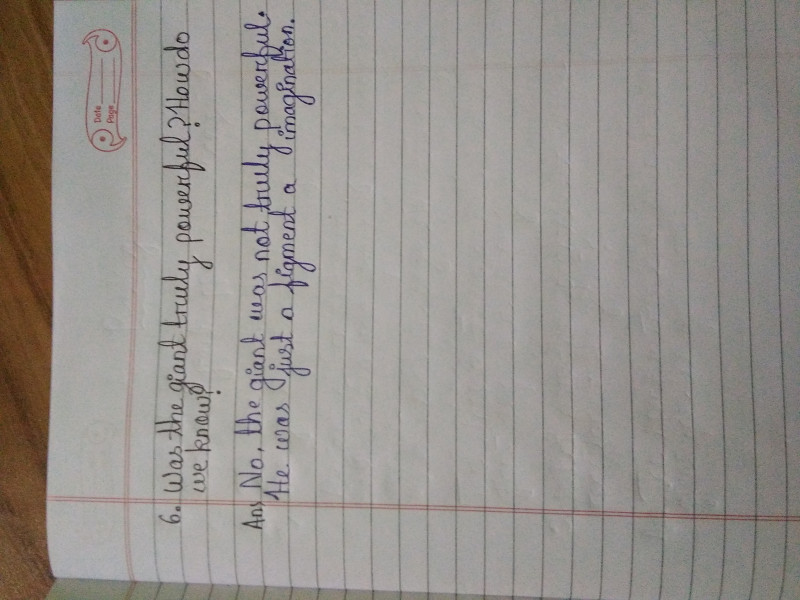 Date
Page
6. Was the giant truly powerful? How do
we know?
Ans No, the giant was not truly powerful.
He was just a figment a imagination.